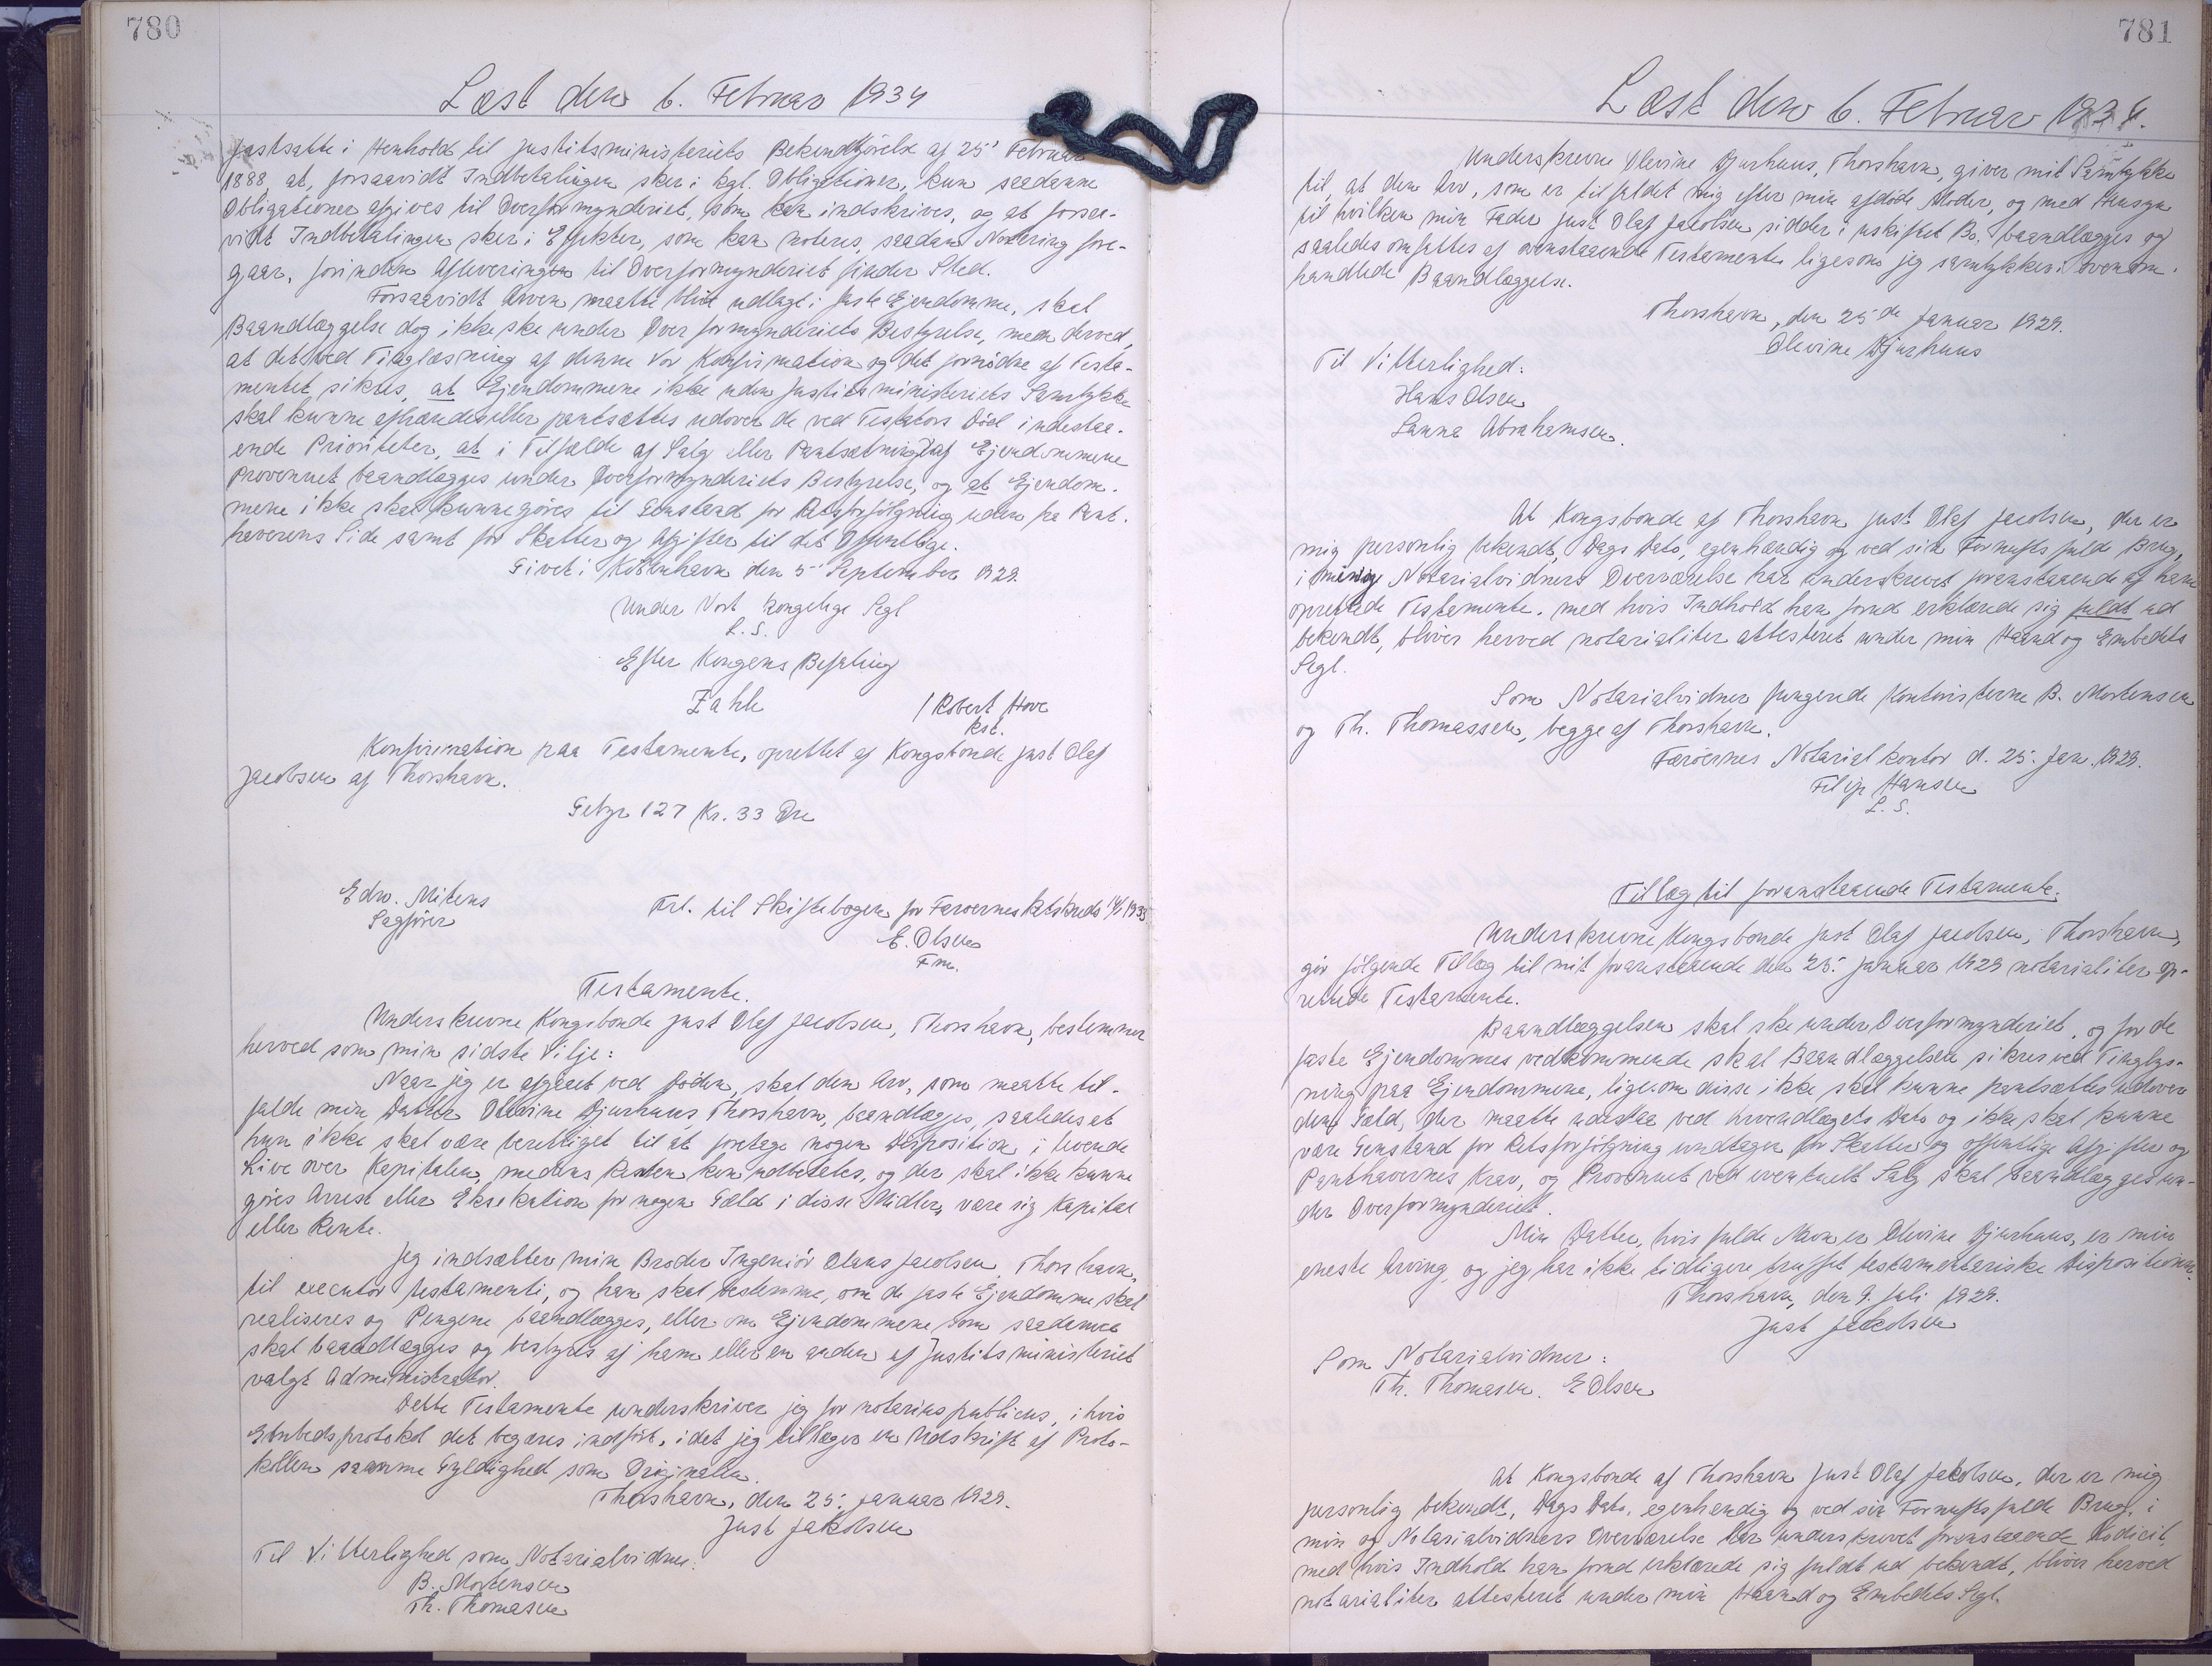 780
Læst den 6. Februar 1934
fastsatte i Henhold til Justitsministeriets Bekendtgörelse af 25' Februar
1888, at, forsaavidt Indbetalingen sker i kgl. Obligationer, kun saadanne
Obligationer afgives til Overformynderiet, som kan indskrives, og at forsaa-
vidt Indbetalingen sker i Effekter, som kan noteres, saadan Notering fore-
gaar, forinden Afleveringen til Overformynderiet finder Sted.
Forsaavidt Arven maatte blive udlagt i faste Ejendomme, skal
Baandlæggelse dog ikke ske under Overformynderiets Bestyrelse, men derved,
at det ved Tinglæsning af denne Vor Konfirmation og det fornödne af Testa-
mentet sikres, at Ejendommene ikke uden Justitsministeriets Samtykke
skal kunne afhændes eller pantsættes udover de ved Testators Död indestaa-
ende Prioriteter, at i Tilfælde af Salg eller Pantsætning af Ejendommene
Provenuet baandlægges under Overformynderiets Bestyrelse, og at Ejendom-
mene ikke skal kunne göres til Genstand for Retsforfölgning uden fra Pant-
haverens Side samt for Skatter og Afgifter til det Offentlige.
Givet i Köbenhavn den 5' September 1929.
Under Vort Kongelige Segl
L. S.
Efter Kongens Befaling
Zahle
/ Robert Hove
kst.
Konfirmation paa Testamente, oprettet af Kongsbonde Just Olaf
Jacobsen af Thorshavn.
Gebyr 127 Kr. 33 Øre
Edw. Mitens
Sagförer
Frt. til Skiftebogen for Færøernes Retskreds 14/1 1933
E. Olsen
Fm.
Testamente.
Underskrevne Kongsbonde Just Olaf Jacobsen, Thorshavn, bestemmer
herved som min sidste Vilje:
Naar jeg er afgaaet ved Döden, skal den Arv, som maatte til-
falde min Datter Olevine Djurhuus, Thorshavn, baandlægges, saaledes at
hun ikke skal være berettiget til at foretage nogen Disposition i levende
Live over Kapitalen, medens Renten kan udbetales, og der skal ikke kunne
göres Arrest eller Eksekution for nogen Gæld i disse Midler, være sig Kapital
eller Rente.
Jeg indsætter min Broder Ingeniör Olaus Jacobsen, Thorshavn,
til executor testamenti, og han skal bestemme, om de faste Ejendomme skal
realiseres og Pengene baandlægges, eller om Ejendommene som saadanne
skal baandlægges og bestyres af ham eller en anden af Justitsministeriet
valgt Administrator.
Dette Testamente underskriver jeg for notarius publicus, i hvis
Embedsprotokol det begæres indfört, idet jeg tillægger en Udskrift af Proto-
kollen samme Gyldighed som Originalen.
Thorshavn, den 25. Januar 1929.
Just Jakobsen
Til Vitterlighed som Notarialvidner:
B. Mortensen
Th. Thomasen
781
Læst den 6. Februar 1934.
Underskrevne Olevine Djurhuus, Thorshavn, giver mit Samtykke
til, at den Arv, som er tilfaldet mig efter min afdöde Moder, og med Hensyn
til hvilken min Fader Just Olaf Jacobsen sidder i uskiftet Bo, baandlægges og
saaledes omfattes af ovenstaaende Testamente ligesom jeg samtykker i ovenom-
handlede Baandlæggelse.
Thorshavn, den 25de Januar 1929.
Olevine Djurhuus
Til Vitterlighed:
Hans Olsen
Sanna Abrahamsen.
At Kongsbonde af Thorshavn Just Olaf Jacobsen, der er
mig personlig bekendt, Dags Dato, egenhændig og ved sin Fornufts fuld Brug,
i min og Notarialvidners Overværelse har underskrevet foranstaaende af ham
oprettede Testamente, med hvis Indhold han forud erklærede sig fuldt ud
bekendt, bliver herved notarialiter attesteret under min Haand og Embedets
Segl.
Som Notarialvidner fungerede Kontoristerne B. Mortensen
og Th. Thomassen, begge af Thorshavn.
Færöernes Notarialkontor d. 25. Jan. 1929.
Filip Hansen
L. S.
Tillæg til foranstaaende Testamente:
Underskrevne Kongsbonde Just Olaf Jacobsen, Thorshavn,
gör fölgende Tillæg til mit foranstaaende den 25. Januar 1929 notarialiter op-
rettede Testamente.
Baandlæggelsen skal ske under Overformynderiet, og for de
faste Ejendommes vedkommende skal Baandlæggelsen sikres ved Tinglys-
ning paa Ejendommene, ligesom disse ikke skal kunne pantsættes udover
den Gæld, der maatte udestaa ved Arveudlægets Dato og ikke skal kunne
være Genstand for Retsforfölgning undtagen for Skatter og offentlige Afgifter og
Panthavernes Krav, og Provenuet ved eventuelt Salg skal baandlægges un-
der Overformynderiet.
Min Datter, hvis fulde Navn er Olevine Djurhuus, er min
eneste Arving, og jeg har ikke tidligere truffet testamentariske Dispositioner.
Thorshavn, den 9. Juli 1929.
Just Jakobsen
Som Notarialvidner:
Th. Thomasen. E Olsen
At Kongsbonde af Thorshavn Just Olaf Jakobsen, der er mig
personlig bekendt, Dags Dato, egenhændig og ved sin Fornufts fulde Brug, i
min og Notarialvidners Overværelse har underskrevet foranstaaende Kodicil,
med hvis Indhold han forud erklærede sig fuldt ud bekendt, bliver herved
notarialiter attesteret under min Haand og Embedets Segl.